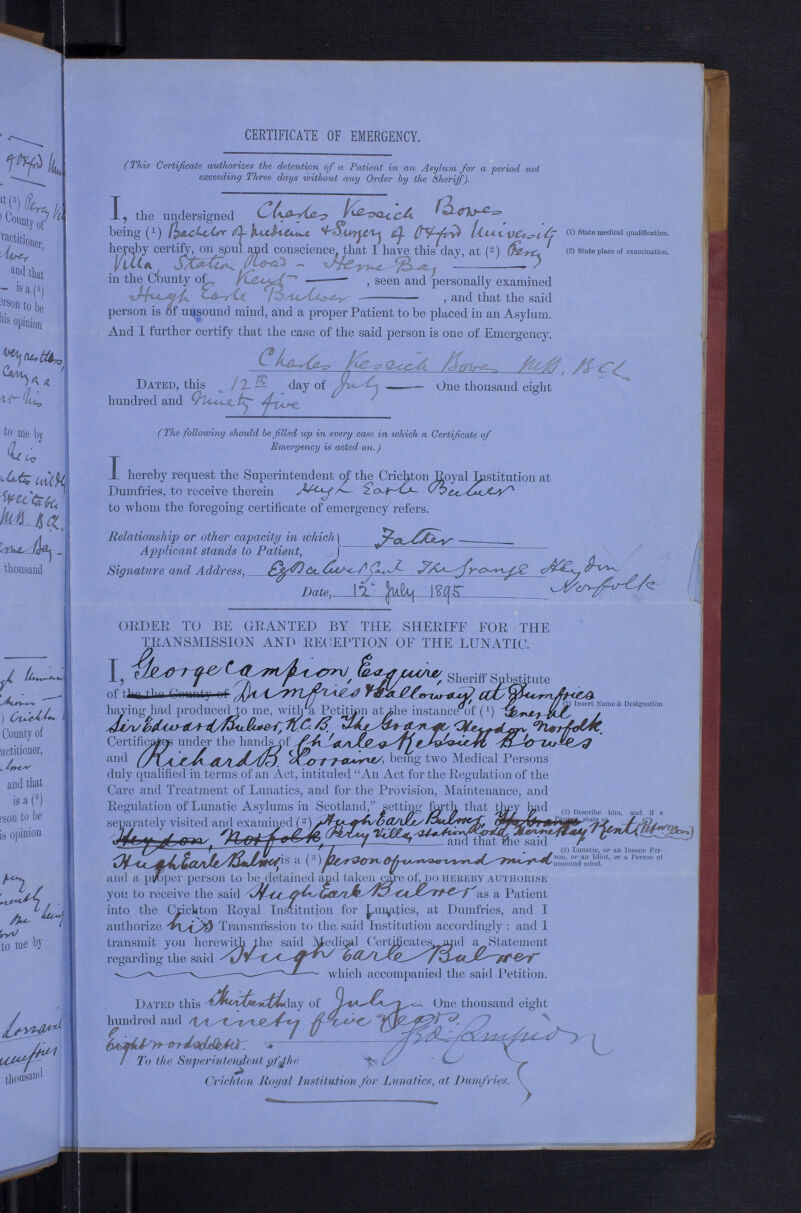 CERTIFICATE OF EMERGENCY.
(This Certificate authorizes the detention of a Patient in an Asylum for a period not
exceeding Three days without any Order by the Sheriff).
I, the undersigned Charles Kessick Bowes
being (1) Bachelor of Medicine & Surgery of Oxford University
(1) State medical qualification.
hereby certify, on soul and conscience, that I have this day, at (2) Percy
(2) State place of examination.
Villa, Station Road - Herne Bay
in the County of Kent , seen and personally examined
Hugh Earle Bulwer , and that the said
person is of unsound mind, and a proper Patient to be placed in an Asylum.
And I further certify that the case of the said person is one of Emergency.
Charles Kessick Bowes MB. BCh
DATED, this 12th day of July One thousand eight
hundred and Ninety five
(The following should be filled up in every case in which a Certificate of
Emergency is acted on.)
I hereby request the Superintendent of the Crichton Royal Institution at
Dumfries, to receive therein Hugh Earle Bulwer
to whom the foregoing certificate of emergency refers.
Relationship or other capacity in which
Applicant stands to Patient, Father
Signature and Address, EGBulwer The Grange Heydon
Norfolk
Date, 12 July 1895
ORDER TO BE GRANTED BY THE SHERIFF FOR THE
TRANSMISSION AND RECEPTION OF THE LUNATIC.
I, George Campion, Esquire, Sheriff Substitute
of the the County of Dumfries & Galloway, at Dumfries
having had produced to me, with a Petition at the instance of (1) General
(1) Insert Name & Designation
Sir Edward Bulwer, K.C.B. The Grange, Heydon Norfolk.
Certificates under the hands of Charles Kessick Bowes
and Richard B. Lorraine, being two Medical Persons
duly qualified in terms of an Act, intituled "An Act for the Regulation of the
Care and Treatment of Lunatics, and for the Provision, Maintenance, and
Regulation of Lunatic Asylums in Scotland," setting forth that they had
separately visited and examined (2) Hugh Earle Bulwer, The Grange
(2) Describe him, and if a
Heydon, Norfolk, Percy Villa, Station Road, Herne Bay Kent,
and that the said
Hugh Earle Bulwer, is a (3) person of unsound mind
(3) Lunatic, or an Insane Person, or an Idiot, or a Person of
unsound mind.
and a proper person to be detained and taken care of, DO HEREBY AUTHORISE
you to receive the said Hugh Earle Bulwer as a Patient
into the Crichton Royal Institution for Lunatics, at Dumfries, and I
authorize his Transmission to the said Institution accordingly: and I
transmit you herewith the said Medical Certificates, and a Statement
regarding the said Hugh Earle Bulwer
which accompanied the said Petition.
DATED this Thirteenth day of July One thousand eight
hundred and ninety five years
Geo: Campion
Eight words deleted.
To the Superintendent of the
Crichton Royal Institution for Lunatics, at Dumfries.
County of
and that
is a (3)
person to be
his opinion
to me by
thousand
County of
and that
is a (3)
is opinion
to me by
thousand